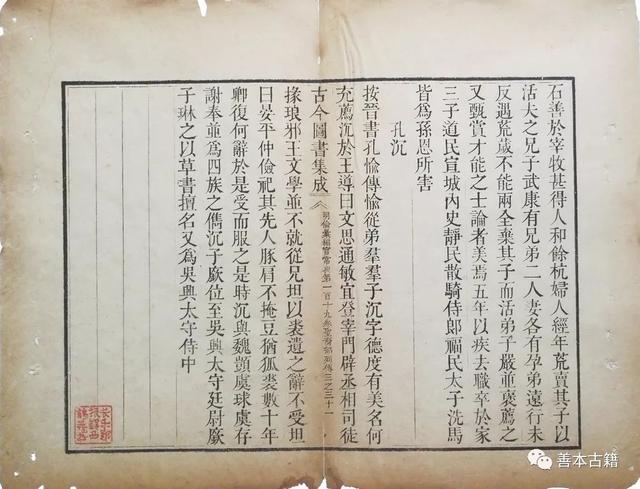 石善於宰牧甚得人和餘杭婦人經年荒賣其子以
活夫之兄子武康有兄弟二人妻各有孕弟遠行未
反遇荒歲不能兩全棄其子而活弟子嚴並褒薦之
又甄賞才能之士論者美焉五年以疾去職卒於家
三子道民宣城內史靜民散騎侍郎福民太子洗馬
皆爲孫恩所害
孔沉
按晉書孔愉傳愉從弟羣羣子沉字德度有美名何
充薦沉於王導曰文思通敏宜登宰門辟丞相司徒
古今圖書集成
明倫彙編官常典第一百十九卷聖裔部列傳三之三十一
掾琅邪王文學並不就從兄坦以裘遺之辭不受坦
曰晏平仲儉祀其先人豚肩不掩豆猶狐裘數十年
卿復何辭於是受而服之是時沉與魏顗虞球虞存
謝奉並爲四族之儁沉子廞位至吳興太守廷尉廞
子琳之以草書擅名又爲吳興太守侍中
善本古籍